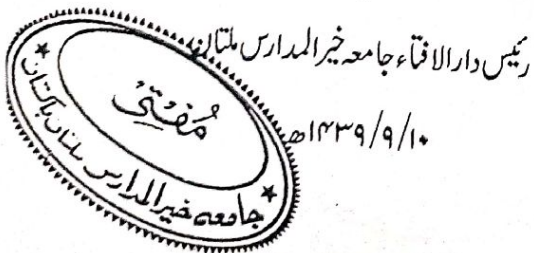 رئیس دارالافتاء جامعہ خیرالمدارس ملتان
۱۴۳۹/۹/۱۰ھ
مُفتِیْ
جامعہ خیرالمدارس ملتان پاکستان